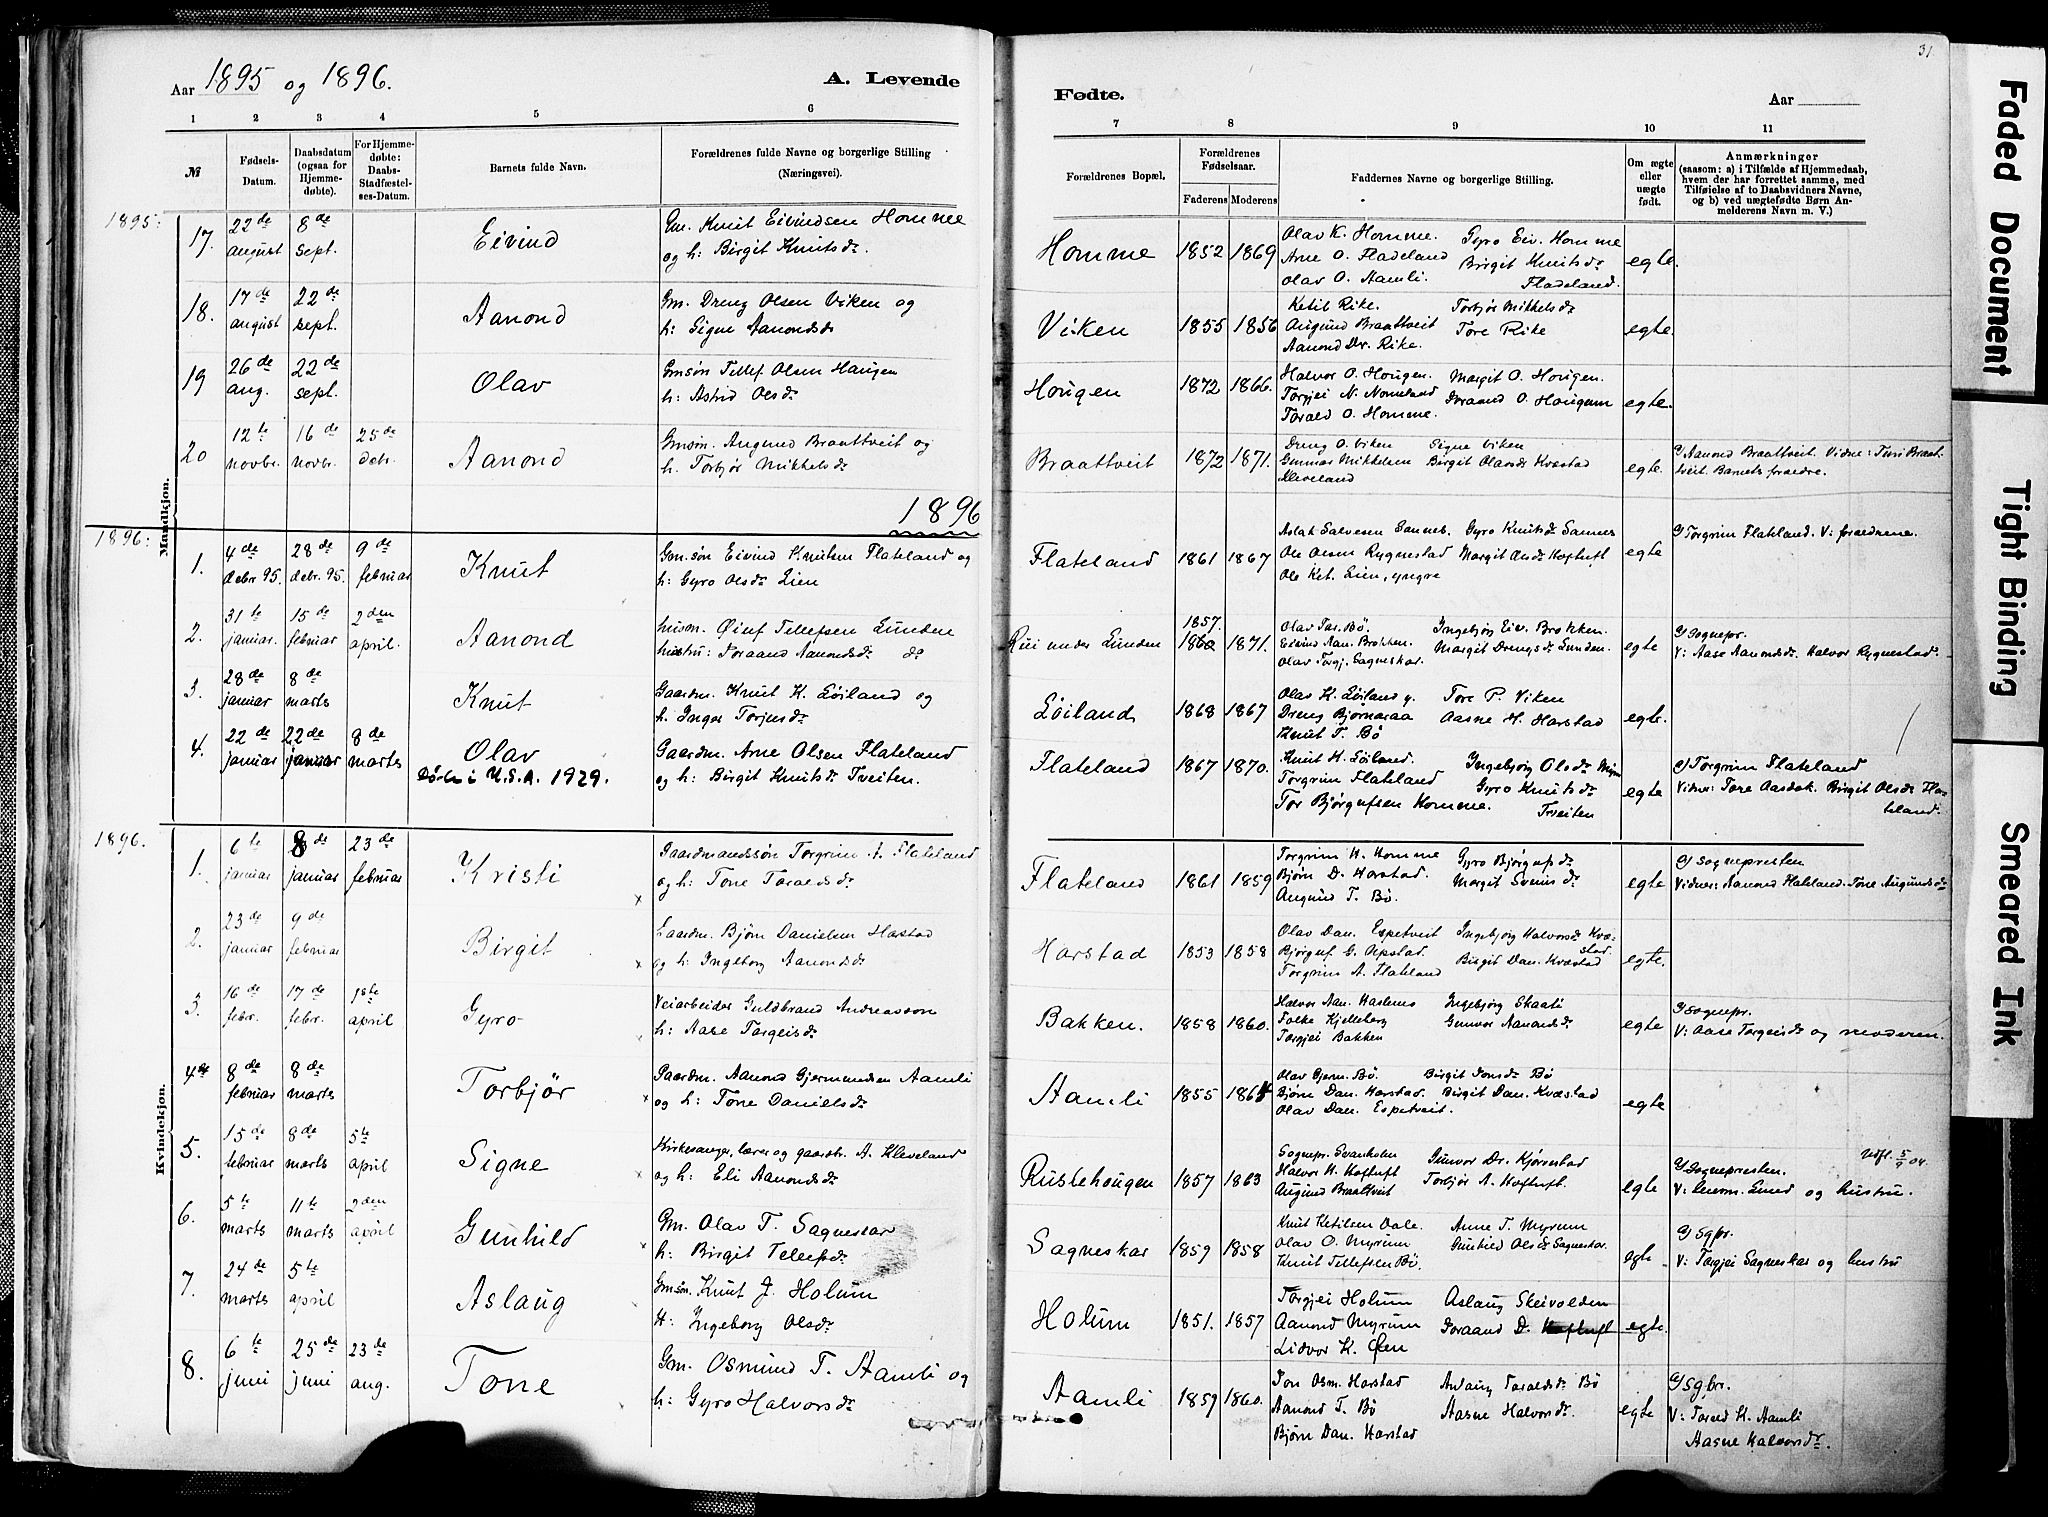 31
Aar 1895 og 1896.
A. Levende
Fødte.
Aar
1 2 3 4 5 6
7 8 9 10 11
№
Fødsels-
Datum.
Daabsdatum
(ogsaa for
Hjemme-
døbte).
For Hjemme-
døbte:
Daabs-
Stadfæstel-
ses-Datum.
Barnets fulde Navn.
Forældrenes fulde Navne og borgerlige Stilling
(Næringsvei).
Forældrenes Bopæl.
Forældrenes
Fødselsaar.
Faderens Moderens
Faddernes Navne og borgerlige Stilling.
Om ægte
eller
uægte
født.
Anmærkninger
(saasom: a) i Tilfælde af Hjemmedaab,
hvem der har forrettet samme, med
Tilføielse af to Daabsvidners Navne,
og b) ved uægtefødte Børn An-
melderens Navn m. V.)
Mandkjøn.
1895:
17. 22de august 8de sept. Eivind
Gm. Knut Eivindsen Homme
og h: Birgit Knutsdr.
Homme 1852 1869
Olav K. Homme. Gyro Eiv. Homme
Arne O. Fladeland Birgit Knutsdr
Olav O. Aamli. Fladeland.
egte.
18. 17de august 22de sept. Aanond
Gm. Dreng Olsen Viken og
h: Signe Aanondsdr
Viken 1855 1856
Ketil Rike. Torbjør Mikkelsdr
Augund Braattveit Tore Rike
Aanond Dr. Rike.
egte.
19 26de aug. 22de sept. Olav
Gmsøn Tellef Olsen Haugen
h: Astrid Olsdr
Hougen 1872 1866.
Halvor O. Hougen. Margit O. Hougen.
Torgjei N. Nomeland Doraand O. Hougum
Torald O. Homme.
egte.
20 12te novbr. 16de novbr. 25de debr. Aanond
Gmsøn. Augund Braattveit og
h. Torbjør Mikkelsdr
Braattveit 1872 1871.
Dreng O. Viken Signe Viken
Gunnar Mikkelsen Birgit Olavsdr Kvæstad
Kleveland
egte.
Aanond Braattveit. Vidne: Turi Braat-
tveit. Barnets foreldre.
1896
1896:
1. 4de debr 95. 28de debr. 95. 9de februar Knut
Gm.søn Eivind Knutsen Flateland og
h: Gyro Olsdr Lien
Flateland 1861 1867
Aslak Salvesen Sannes. Gyro Knutsdr Sannes
Ole Olsen Rygnestad Margit Olsdr Koftuft
Ole Ket. Lien, yngre
egte
Torgrim Flateland. V: forældrene.
2. 31te januar. 15de februar 2den april. Aanond
husm. Øiuf Tellefsen Lunden
hustru: Toraand Aanondsdr do
Rui under Lunden 1857. 1860 1871.
Olav Tar. Bø. Ingebjøg Eiv. Brokken.
Eivind Aan. Brokken. Margit Drengsdr Lunden.
Olav Torgj. Sagneskar.
egte
Sognepr.
V: Aase Aanondsdr. Halvor Rygnestad.
3. 28de januar 8de marts Knut
Gaardm. Knut K. Løiland og
h. Inger Torjusdr
Løiland 1868 1867
Olav K. Løiland y. Tore P. Viken
Dreng Bjørnaraa Aasne H. Harstad
Knut T. Bø
egte.
4. 22de januar 22de januar 8de marts Olav
Død i U.S.A. 1929.
Gaardm. Arne Olsen Flateland
og h: Birgit Knutsdr Tveiten.
Flateland 1867 1870.
Knut K. Løiland. Ingebjøg Olsdr
Torgrim Flateland Gyro Knutsdr
Tor Bjørgufsen Homme. Tveiten
egte
Torgrim Flateland
Vidner: Tore Aasdok. Birgit Olsdr Fla-
teland.
Kvindekjøn.
1896.
1. 6te januar 8de januar 23de februar Kristi
Gaardmandssøn Torgrim A. Flateland
og h: Tone Taraldsdr.
Flateland 1861 1859
Torgrim H. Homme Gyro Bjørgufsdr
Bjørn D. Harstad. Margit Sveinsdr
Augund T. Bø.
egte
Sognepresten
Vidner: Aanond Flateland. Tone Augundsdr
2. 23de januar 9de februar Birgit
Gaardm. Bjørn Danielsen Harstad
og h: Ingeborg Aanondsdr
Harstad 1853 1858
Olav Dan. Espetveit Ingebjøg Halvorsdr Kvæ-
stad.
Bjørguf G. Opstad. Birgit Dan. Kvæstad
Torgrim A. Flateland
egte.
3. 16de febr. 17de febr. 1ste april Gyro
Veiarbeider Guldbrand Andreasson
h: Aase Torgeisdr
Bakken. 1858 1860.
Halvor Aan. Haslemo Ingebjøg Skaali
Folke Kjelleberg Gunvor Aanondsdr
Torgjei Bakken
egte
Sognepr.
V: Aase Torgeisdr og moderen.
4de 8de februar 8de marts Torbjør
Gaardm. Aanond Gjermundsen Aamli
og h: Tone Danielsdr
Aamli 1855 1864
Olav Gjerm. Bø. Birgit Jonsdr Bø
Bjørn Dan. Harstad. Birgit Dan. Kvæstad
Olav Dan. Espetveit.
egte
5. 15de februar 8de marts 5te april Signe
Kirkesanger, lærer og gaardbr. A. Kleveland
og h: Eli Aanondsdr
Rustehougen 1857 1863
Sognepr. Svanholm Gunvor Dr. Kjørrestad
Halvor H. Koftuft Torbjør A. Koftuft.
Augund Braattveit
egte
Sognepresten. Udfl. 5/9 04.
V: lensm. Lund og hustru.
6. 5te marts 11te marts 2den april Gunhild
Gm. Olav T. Sagneskar
h: Birgit Tellefsdr.
Sagneskar 1859 1858
Knut Ketilsen Dale. Anne T. Myrum
Olav O. Myrum Gunhild Olsdr Sagneskar.
Knut Tellefsen Bø.
egte
Sgpr.
V: Torgjei Sagneskar og hustru
7. 24de marts 5te april Aslaug
Gmsøn. Knut J. Holum
H: Ingeborg Olsdr.
Holum 1851. 1857
Torgjei Holum Aslaug Skeivolden
Aanond Myrum Toraand D. Koftuft
Lidvor K. Øen
egte.
8. 6te juni 25de juni 23de aug. Tone
Gm. Osmund T. Aamli og
h: Gyro Halvorsdr
Aamli 1859 1860.
Jon Osm. Harstad Aslaug Taraldsdr Bø
Aanond T. Bø Aasne Halvorsdr.
Bjørn Dan. Harstad
egte
Sgpr.
V: Tarald K. Aamli
Aasne Halvorsdr.
Faded Document
Tight Binding
Smeared Ink